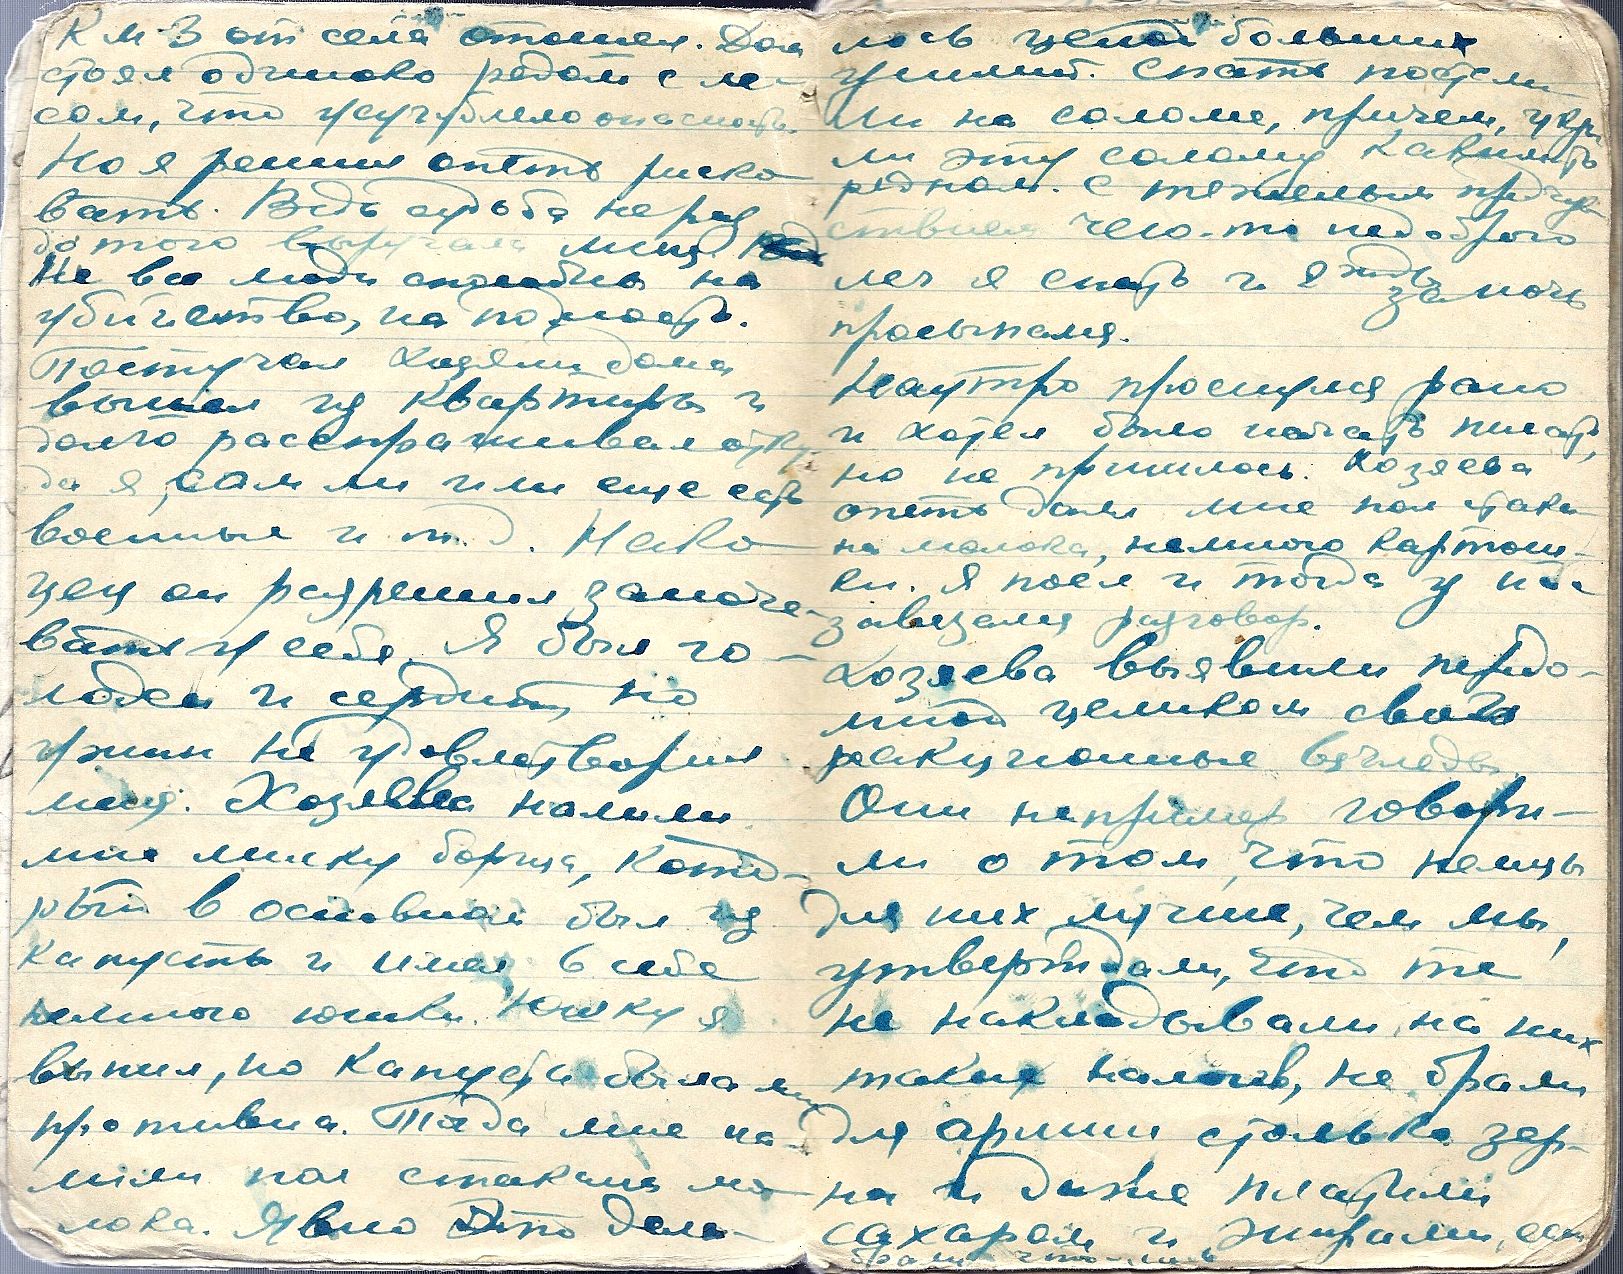 Км 3 от села отошел. Дом
стоял одиноко рядом с ле-
сом, что усугубляло опасность.
Но я решил опять риско
вать. Ведь судьба не раз
до того выручала меня.
Не все люди способны на
убийство, на подлость.
Постучал. Хозяин дома
вышел из квартиры и
долго расспрашивал отку-
да я, сам ли или еще есть
военные и т.д. Нако
нец он разрешил заноче-
вать у себя. Я был го-
лоден и сердит, но
ужин не удовлетворил
меня. Хозяева налили
мне миску борща, кото-
рый в основном был из
капусты и имел в себе
немного юшки. Юшку я
выпил, но капуста была мне
противна. Тогда мне на-
лили пол стакана мо-
лока. Явно это дела-
лось ценой больших
усилий. Спать постели
ли на соломе, причем, укры
ли эту солому каким-то
рядном. С тяжелым предчув
ствием чего-то недоброго
лег я спать и я за ночь
просыпался.
Наутро проснулся рано
и хотел было начать писать,
но не пришлось. Хозяева
опять дали мне пол стака-
на молока, немного картош-
ки. Я поел и тогда у нас
завязался разговор.
Хозяева выявили передо-
мной целиком свои
реакционные взгляды.
Они например говори-
ли о том, что немцы
для них лучше, чем мы,
утверждали, что те
не накладывали на них
таких налогов, не брали
для армии столько зер-
на и даже платили
сахаром и жирами, если
брали что-либо